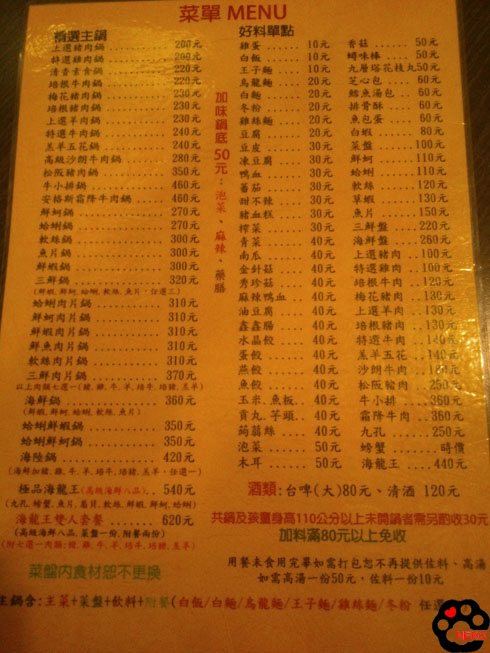 菜單 MENU
精選主鍋
上選豬肉鍋 200元
特選雞肉鍋 220元
清香素食鍋 220元
培根牛肉鍋 230元
梅花豬肉鍋 230元
培根豬肉鍋 230元
上選羊肉鍋 240元
特選牛肉鍋 240元
羔羊五花鍋 240元
高級沙朗牛肉鍋 280元
松阪豬肉鍋 350元
牛小排鍋 460元
安格斯霜降牛肉鍋 460元
鮮蚵鍋 270元
蛤蜊鍋 270元
軟絲鍋 300元
魚肉鍋 300元
鮮蝦鍋 300元
三鮮鍋 320元
(鮮蝦, 鮮蚵, 蛤蜊, 軟絲, 魚片, 任選三)
蛤蜊肉片鍋 310元
鮮蚵肉片鍋 310元
鮮蝦肉片鍋 310元
鮮魚肉片鍋 310元
軟絲肉片鍋 310元
三鮮肉片鍋 370元
以上肉類七選一(豬, 雞, 牛, 羊, 培牛, 培豬, 五羊)
海鮮鍋 360元
(鮮蝦, 鮮蚵, 蛤蜊, 軟絲, 魚片)
蛤蜊鮮蝦鍋 350元
蛤蜊鮮蚵鍋 350元
海陸鍋 420元
(海鮮加豬, 雞, 牛, 羊, 培牛, 培豬, 五羊, 任選一)
極品海龍王(高級海鮮八品) 540元
海龍王雙人套餐 620元
(高級海鮮八品, 菜盤一份, 附餐兩份)
(附七選一肉類: 豬, 雞, 牛, 羊, 培牛, 培豬, 五羊)
菜盤內食材恕不更換
加味鍋底50元：泡菜、麻辣、藥膳
好料單點
雞蛋 10元
白飯 10元
王子麵 20元
烏龍麵 20元
白麵 20元
冬粉 20元
雞絲麵 20元
豆腐 20元
豆皮 30元
凍豆腐 30元
鴨血 30元
蕃茄 30元
甜不辣 30元
豬血糕 30元
榨菜 30元
青菜 40元
南瓜 40元
金針菇 40元
秀珍菇 40元
麻辣鴨血 40元
油豆腐 40元
鑫鑫腸 40元
水晶餃 40元
蛋餃 40元
燕餃 40元
魚餃 40元
玉米, 魚板 40元
貢丸, 芋頭 40元
蒟蒻絲 40元
泡菜 50元
木耳 50元
香菇 50元
蟳味棒 50元
九層塔花枝丸50元
芝心包 60元
鱈魚湯包 60元
排骨酥 60元
魚包蛋 60元
白蝦 80元
菜盤 100元
鮮蚵 110元
蛤蜊 110元
軟絲 120元
草蝦 130元
魚片 150元
三鮮盤 220元
海鮮盤 260元
上選豬肉 110元
特選雞肉 120元
培根牛肉 120元
梅花豬肉 130元
培根豬肉 130元
上選羊肉 130元
特選牛肉 140元
羔羊五花 140元
沙朗牛肉 180元
松阪豬肉 250元
牛小排 360元
霜降牛肉 360元
九孔 250元
螃蟹 時價
海龍王 440元
酒類：台啤(大)80元、清酒 120元
共鍋及孩童身高110公分以上未開鍋者需另酌收30元
加料滿80元以上免收
用餐未食用完畢如需打包恕不再提供佐料、高湯
如需高湯一份50元，佐料一份10元
主鍋含：主菜+菜盤+飲料+附餐(白飯/白麵/烏龍麵/王子麵/雞絲麵/冬粉 任選
NEKO